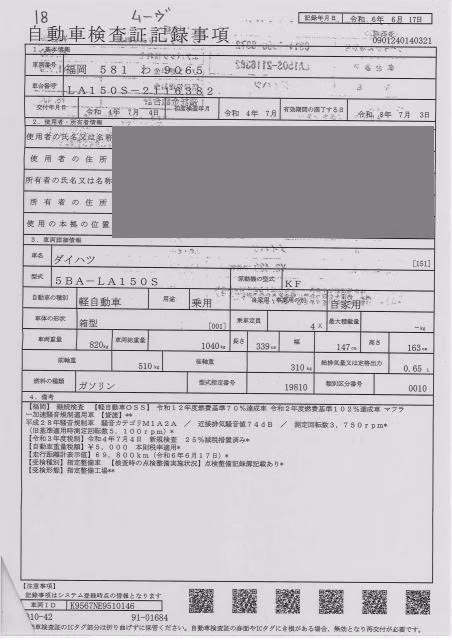 18 ムーヴ
自動車検査証記録事項
記録年月日 令和 6年 6月 17日
0901240140321
1. 基本情報
車両番号 福岡 581 わ 9065
車台番号 LA150S-2116382
交付年月日 令和 4年 7月 4日 初度検査年月 令和 4年 7月 有効期間の満了する日 令和 8年 7月 3日
2. 使用者・所有者情報
使用者の氏名又は名称
使用者の住所
所有者の氏名又は名称
所有者の住所
使用の本拠の位置
3. 車両詳細情報
車名 ダイハツ [151]
型式 5BA-LA150S 原動機の型式 KF
自動車の種別 軽自動車 用途 乗用 自家用・事業用の別 自家用
車体の形状 箱型 [001] 乗車定員 4人 最大積載量 -kg
車両重量 820kg 車両総重量 1040kg 長さ 339cm 幅 147cm 高さ 163cm
前軸重 510kg 後軸重 310kg 総排気量又は定格出力 0.65L
燃料の種類 ガソリン 型式指定番号 19810 類別区分番号 0010
4. 備考
【福岡】 継続検査 【軽自動車OSS】 令和12年度燃費基準70%達成車 令和2年度燃費基準102%達成車 マフラ
ー加速騒音規制適用車 【貨渡】**
平成28年騒音規制車 騒音カテゴリM1A2A / 近接排気騒音値74dB / 測定回転数3,750rpm*
(旧基準適用時測定回転数5,100rpm)*
【令和3年度税制】令和4年7月4日 新規検査 25%減税措置済み*
【自動車重量税】¥5,000 本則税率適用*
【走行距離計表示値】69,800km(令和6年6月17日)*
【受検種別】指定整備車 【検査時の点検整備実施状況】点検整備記録簿記載あり*
【受検形態】指定整備工場**
【注意事項】
記録事項はシステム登録時点の情報となります
車両ID K9567NE9510146
010-42 91-01684
自動車検査証のICタグ部分は折り曲げずに保管ください。自動車検査証の券面やICタグに毀損がある場合、無効となり再交付が必要です。